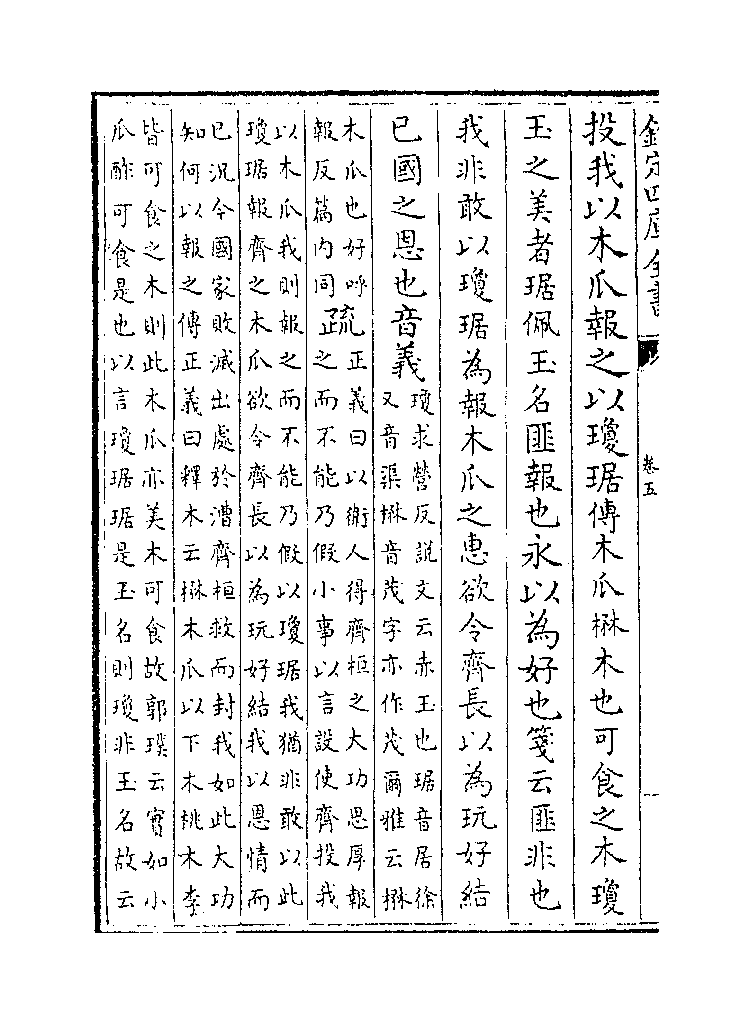 欽定四庫全書
卷五
投我以木瓜報之以瓊琚傳木瓜楙木也可食之木瓊
玉之美者琚佩玉名匪報也永以為好也箋云匪非也
我非敢以瓊琚為報木瓜之惠欲令齊長以為玩好結
已國之恩也音義
瓊求營反說文云赤玉也琚音居徐
又音渠楙音茂字亦作茂爾雅云楙
木瓜也好呼
報反篇內同
疏
正義曰以衛人得齊桓之大功思厚報
之而不能乃假小事以言設使齊投我
以木瓜我則報之而不能乃假以瓊琚我猶非敢以此
瓊琚報齊之木瓜欲令齊長以為玩好結我以恩情而
已況今國家敗滅出處於漕齊桓救而封我如此大功
知何以報之傳正義曰釋木云楙木瓜以下木桃木李
皆可食之木則此木瓜亦美木可食故郭璞云實如小
瓜酢可食是也以言瓊琚琚是玉名則瓊非玉名故云